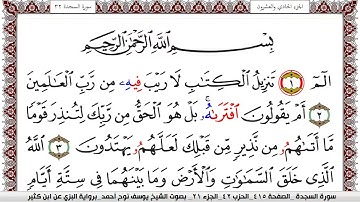 سورة السجدة ٣٢
الجزء الحادي والعشرون
بِسْمِ اللَّهِ الرَّحْمَٰنِ الرَّحِيمِ
الٓمٓ ١ تَنزِيلُ الْكِتَابِ لَا رَيْبَ فِيهِۦ مِن رَّبِّ الْعَالَمِينَ
٢ أَمْ يَقُولُونَ افْتَرَىٰهُۥ ۚ بَلْ هُوَ الْحَقُّ مِن رَّبِّكَ لِتُنذِرَ قَوْمًا
مَّا أَتَىٰهُمُۥ مِّن نَّذِيرٍ مِّن قَبْلِكَ لَعَلَّهُمُۥ يَهْتَدُونَ ٣ اللَّهُ
الَّذِي خَلَقَ السَّمَٰوَٰتِ وَالْأَرْضَ وَمَا بَيْنَهُمَا فِي سِتَّةِ أَيَّامٍ
سورة السجدة الصفحة ٤١٥ الحزب ٤٢ الجزء ٢١ بصوت الشيخ يوسف نوح أحمد برواية البزي عن ابن كثير